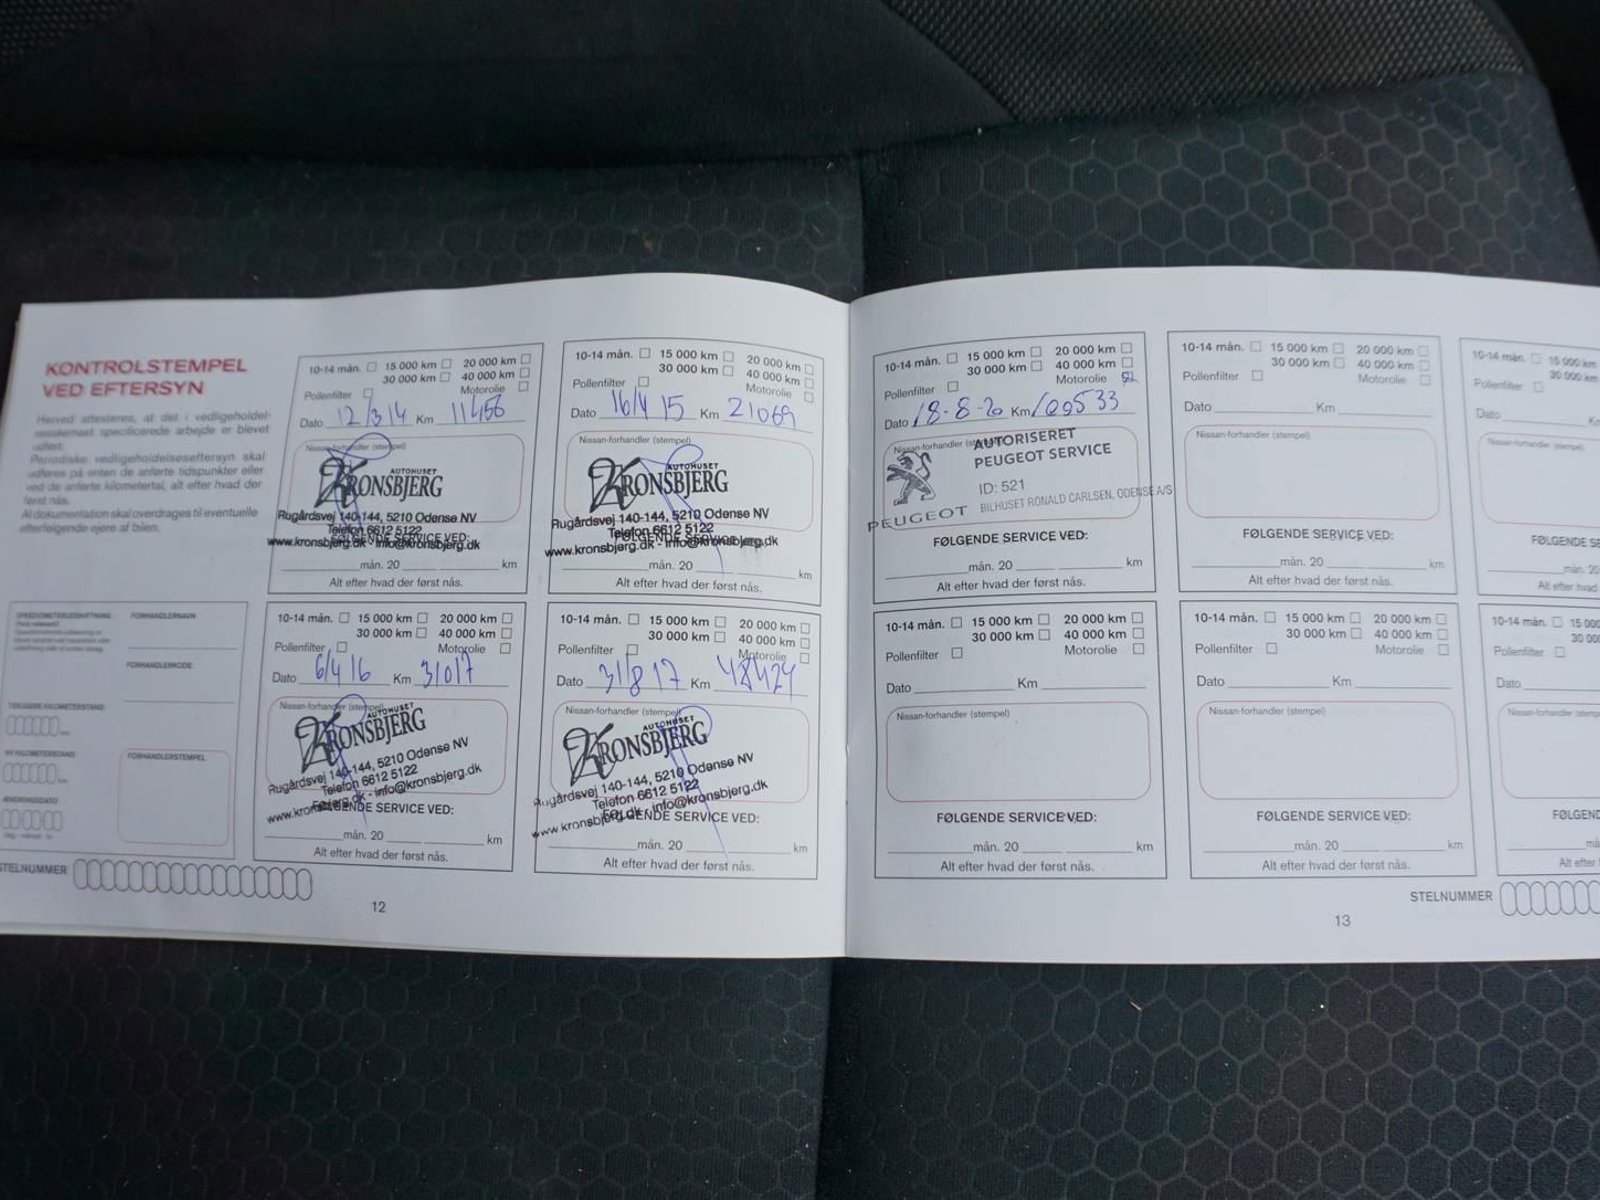 KONTROLSTEMPEL
VED EFTERSYN
Herved attesteres, at det i vedligeholdel-
sesskemaet specificerede arbejde er blevet
udført.
Periodiske vedligeholdelseseftersyn skal
udføres på enten de anførte tidspunkter eller
ved de anførte kilometertal, alt efter hvad der
først nås.
Al dokumentation skal overdrages til eventuelle
efterfølgende ejere af bilen.
10-14 mån. 15 000 km 20 000 km
30 000 km 40 000 km
Pollenfilter Motorolie
Dato 12/3 14 Km 11456
Nissan-forhandler (stempel)
AUTOHUSET
KRONSBJERG
Rugårdsvej 140-144, 5210 Odense NV
Telefon 6612 5122
www.kronsbjerg.dk - info@kronsbjerg.dk
FØLGENDE SERVICE VED:
mån. 20 km
Alt efter hvad der først nås.
10-14 mån. 15 000 km 20 000 km
30 000 km 40 000 km
Pollenfilter Motorolie
Dato 16/4 15 Km 21069
Nissan-forhandler (stempel)
AUTOHUSET
KRONSBJERG
Rugårdsvej 140-144, 5210 Odense NV
Telefon 6612 5122
www.kronsbjerg.dk - info@kronsbjerg.dk
mån. 20 km
Alt efter hvad der først nås.
FORHANDLERNAVN:
FORHANDLERKODE:
TIDLIGERE KILOMETERSTAND:
NY KILOMETERSTAND:
ÆNDRINGSDATO
FORHANDLERSTEMPEL
10-14 mån. 15 000 km 20 000 km
30 000 km 40 000 km
Pollenfilter Motorolie
Dato 6/4 16 Km 31017
Nissan-forhandler (stempel)
AUTOHUSET
KRONSBJERG
Rugårdsvej 140-144, 5210 Odense NV
Telefon 6612 5122
www.kronsbjerg.dk - info@kronsbjerg.dk
FØLGENDE SERVICE VED:
mån. 20 km
Alt efter hvad der først nås.
10-14 mån. 15 000 km 20 000 km
30 000 km 40 000 km
Pollenfilter Motorolie
Dato 31/8 17 Km 48424
Nissan-forhandler (stempel)
AUTOHUSET
KRONSBJERG
Rugårdsvej 140-144, 5210 Odense NV
Telefon 6612 5122
www.kronsbjerg.dk - info@kronsbjerg.dk
FØLGENDE SERVICE VED:
mån. 20 km
Alt efter hvad der først nås.
STELNUMMER
12
10-14 mån. 15 000 km 20 000 km
30 000 km 40 000 km
Pollenfilter Motorolie
Dato 18-8-20 Km 109533
Nissan-forhandler (stempel)
AUTORISERET
PEUGEOT SERVICE
ID: 521
PEUGEOT BILHUSET RONALD CARLSEN, ODENSE A/S
FØLGENDE SERVICE VED:
mån. 20 km
Alt efter hvad der først nås.
10-14 mån. 15 000 km 20 000 km
30 000 km 40 000 km
Pollenfilter Motorolie
Dato Km
Nissan-forhandler (stempel)
FØLGENDE SERVICE VED:
mån. 20 km
Alt efter hvad der først nås.
10-14 mån. 15 000 km
30 000 km
Pollenfilter
Dato
Nissan-forhandler (stempel)
FØLGENDE SE
mån. 20
Alt efter hvad
10-14 mån. 15 000 km 20 000 km
30 000 km 40 000 km
Pollenfilter Motorolie
Dato Km
Nissan-forhandler (stempel)
FØLGENDE SERVICE VED:
mån. 20 km
Alt efter hvad der først nås.
10-14 mån. 15 000 km 20 000 km
30 000 km 40 000 km
Pollenfilter Motorolie
Dato Km
Nissan-forhandler (stempel)
FØLGENDE SERVICE VED:
mån. 20 km
Alt efter hvad der først nås.
10-14 mån. 15 00
30 00
Pollenfilter
Dato
Nissan-forhandler (stemp
FØLGEND
Alt efter
STELNUMMER
13